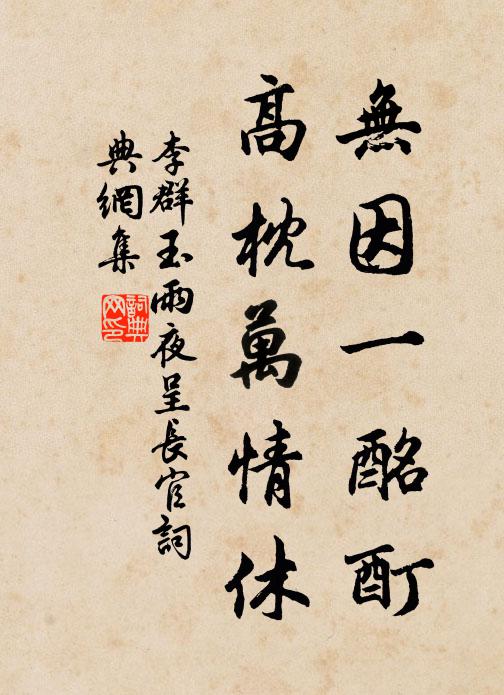 無因一酩酊
高枕萬情休
李群玉雨夜呈長官詞
典網集
詞典網印